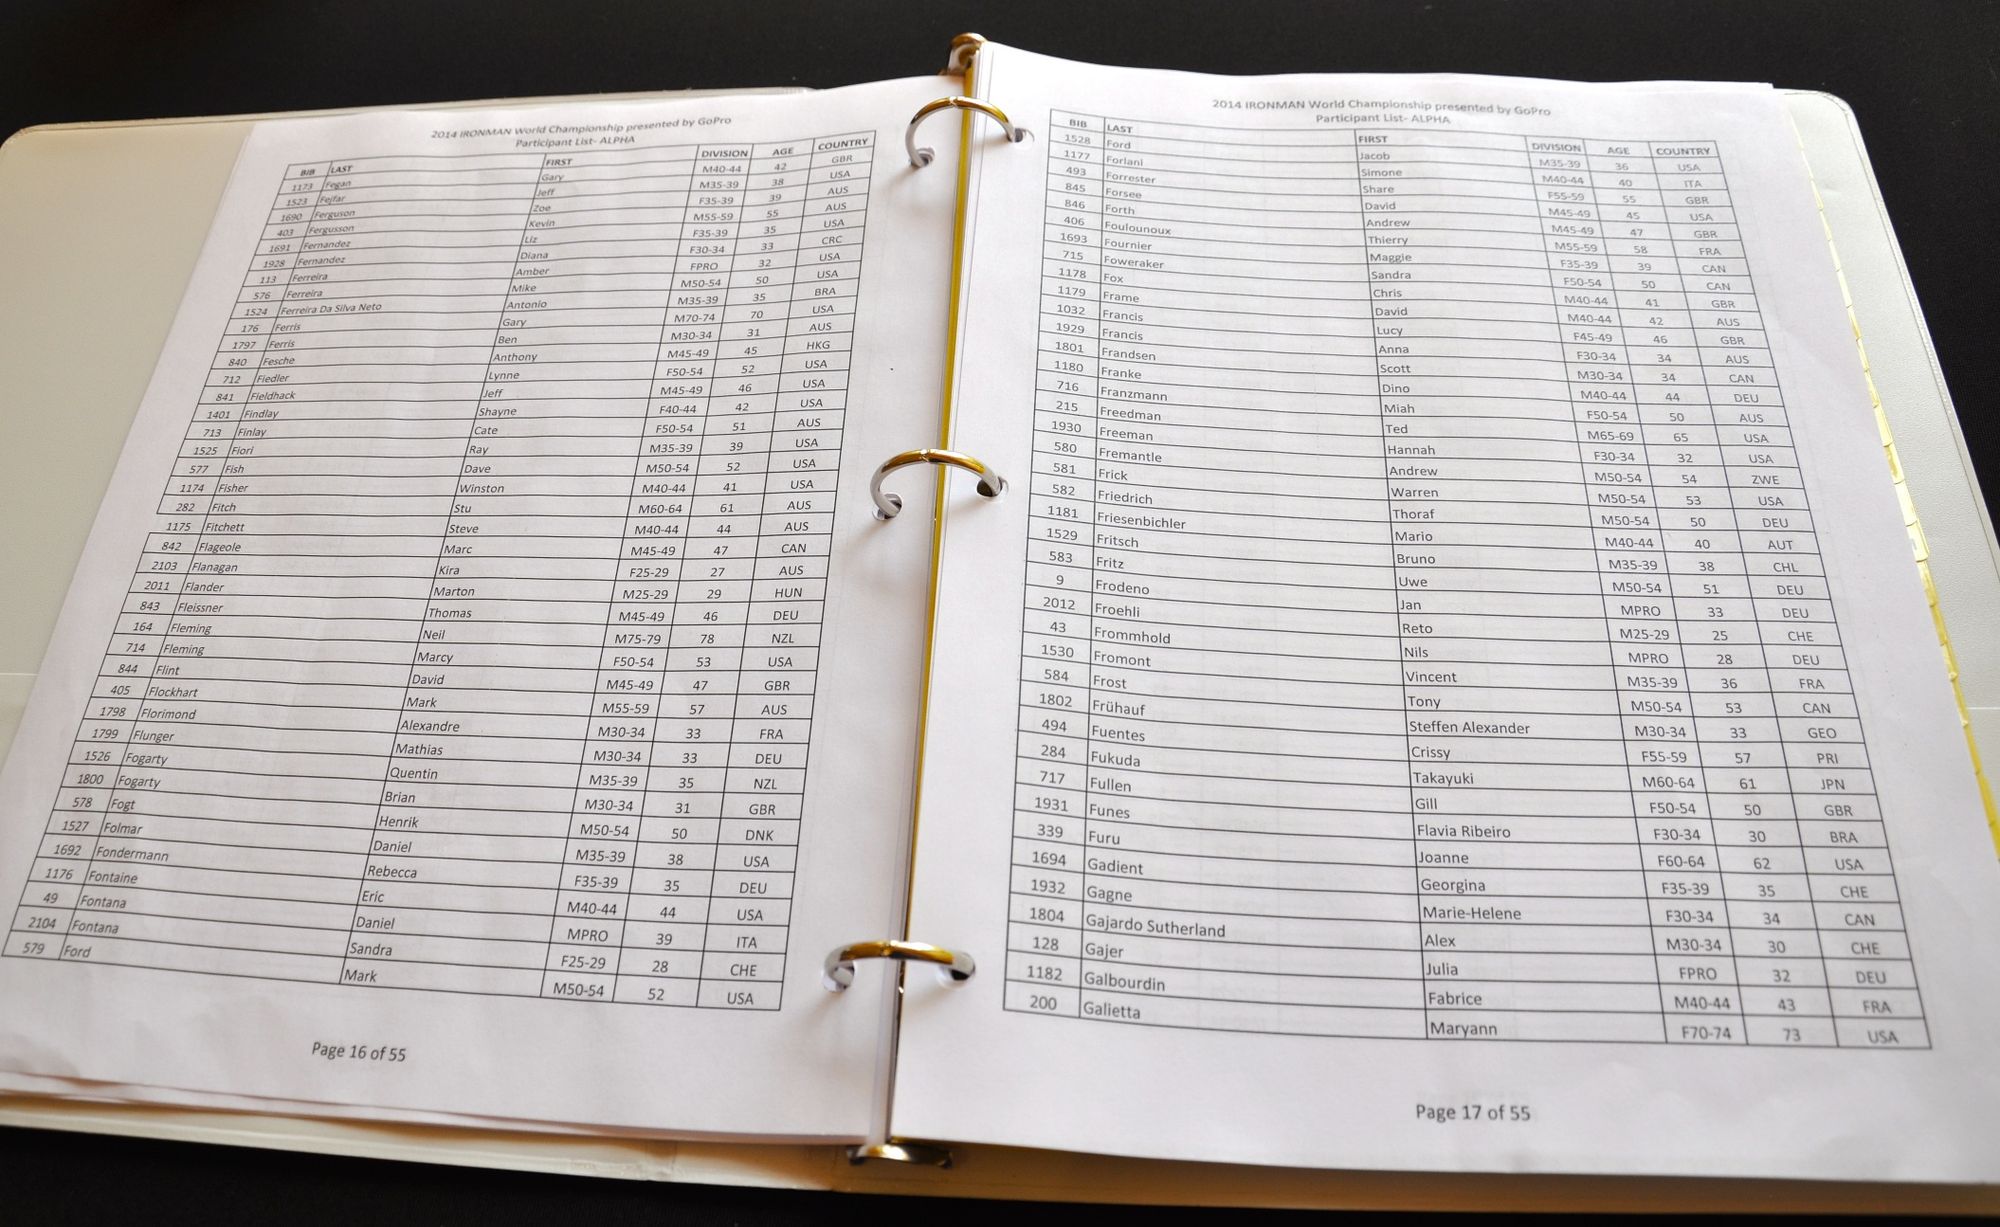 2014 IRONMAN World Championship presented by GoPro
Participant List- ALPHA
BIB LAST FIRST DIVISION AGE COUNTRY
1173 Fegan Gary M40-44 42 GBR
1523 Fejfar Jeff M35-39 38 USA
1690 Ferguson Zoe F35-39 39 AUS
403 Fergusson Kevin M55-59 55 AUS
1691 Fernandez Liz F35-39 35 USA
1928 Fernandez Diana F30-34 33 CRC
113 Ferreira Amber FPRO 32 USA
576 Ferreira Mike M50-54 50 USA
1524 Ferreira Da Silva Neto Antonio M35-39 35 BRA
176 Ferris Gary M70-74 70 USA
1797 Ferris Ben M30-34 31 AUS
840 Fesche Anthony M45-49 45 HKG
712 Fiedler Lynne F50-54 52 USA
841 Fieldhack Jeff M45-49 46 USA
1401 Findlay Shayne F40-44 42 USA
713 Finlay Cate F50-54 51 AUS
1525 Fiori Ray M35-39 39 USA
577 Fish Dave M50-54 52 USA
1174 Fisher Winston M40-44 41 USA
282 Fitch Stu M60-64 61 AUS
1175 Fitchett Steve M40-44 44 AUS
842 Flageole Marc M45-49 47 CAN
2103 Flanagan Kira F25-29 27 AUS
2011 Flander Marton M25-29 29 HUN
843 Fleissner Thomas M45-49 46 DEU
164 Fleming Neil M75-79 78 NZL
714 Fleming Marcy F50-54 53 USA
844 Flint David M45-49 47 GBR
405 Flockhart Mark M55-59 57 AUS
1798 Florimond Alexandre M30-34 33 FRA
1799 Flunger Mathias M30-34 33 DEU
1526 Fogarty Quentin M35-39 35 NZL
1800 Fogarty Brian M30-34 31 GBR
578 Fogt Henrik M50-54 50 DNK
1527 Folmar Daniel M35-39 38 USA
1692 Fondermann Rebecca F35-39 35 DEU
1176 Fontaine Eric M40-44 44 USA
49 Fontana Daniel MPRO 39 ITA
2104 Fontana Sandra F25-29 28 CHE
579 Ford Mark M50-54 52 USA
Page 16 of 55
2014 IRONMAN World Championship presented by GoPro
Participant List- ALPHA
BIB LAST FIRST DIVISION AGE COUNTRY
1528 Ford Jacob M35-39 36 USA
1177 Forlani Simone M40-44 40 ITA
493 Forrester Share F55-59 55 GBR
845 Forsee David M45-49 45 USA
846 Forth Andrew M45-49 47 GBR
406 Foulounoux Thierry M55-59 58 FRA
1693 Fournier Maggie F35-39 39 CAN
715 Foweraker Sandra F50-54 50 CAN
1178 Fox Chris M40-44 41 GBR
1179 Frame David M40-44 42 AUS
1032 Francis Lucy F45-49 46 GBR
1929 Francis Anna F30-34 34 AUS
1801 Frandsen Scott M30-34 34 CAN
1180 Franke Dino M40-44 44 DEU
716 Franzmann Miah F50-54 50 AUS
215 Freedman Ted M65-69 65 USA
1930 Freeman Hannah F30-34 32 USA
580 Fremantle Andrew M50-54 54 ZWE
581 Frick Warren M50-54 53 USA
582 Friedrich Thoraf M50-54 50 DEU
1181 Friesenbichler Mario M40-44 40 AUT
1529 Fritsch Bruno M35-39 38 CHL
583 Fritz Uwe M50-54 51 DEU
9 Frodeno Jan MPRO 33 DEU
2012 Froehli Reto M25-29 25 CHE
43 Frommhold Nils MPRO 28 DEU
1530 Fromont Vincent M35-39 36 FRA
584 Frost Tony M50-54 53 CAN
1802 Frühauf Steffen Alexander M30-34 33 GEO
494 Fuentes Crissy F55-59 57 PRI
284 Fukuda Takayuki M60-64 61 JPN
717 Fullen Gill F50-54 50 GBR
1931 Funes Flavia Ribeiro F30-34 30 BRA
339 Furu Joanne F60-64 62 USA
1694 Gadient Georgina F35-39 35 CHE
1932 Gagne Marie-Helene F30-34 34 CAN
1804 Gajardo Sutherland Alex M30-34 30 CHE
128 Gajer Julia FPRO 32 DEU
1182 Galbourdin Fabrice M40-44 43 FRA
200 Galietta Maryann F70-74 73 USA
Page 17 of 55